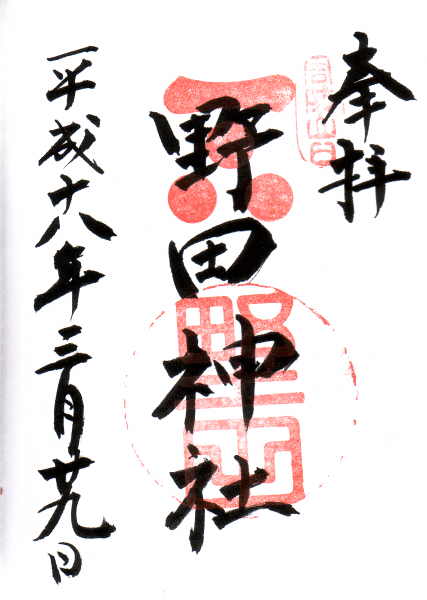 奉拝
野田神社
平成十八年三月廿九日